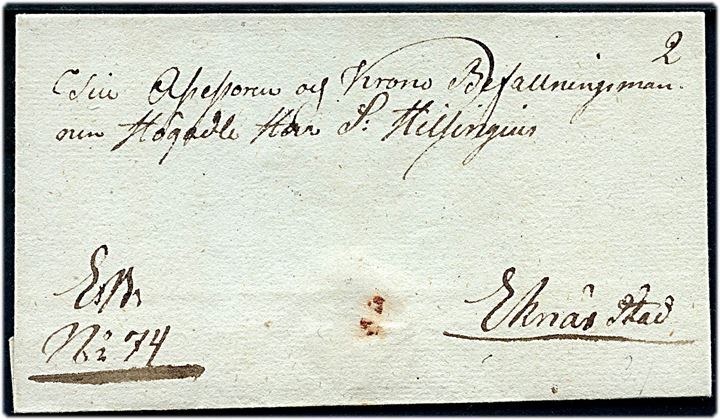 2
Assessoren och Krono Befallningsman-
nen Högädle Herr S: Hilsingius
Eknäs Stad
No 74